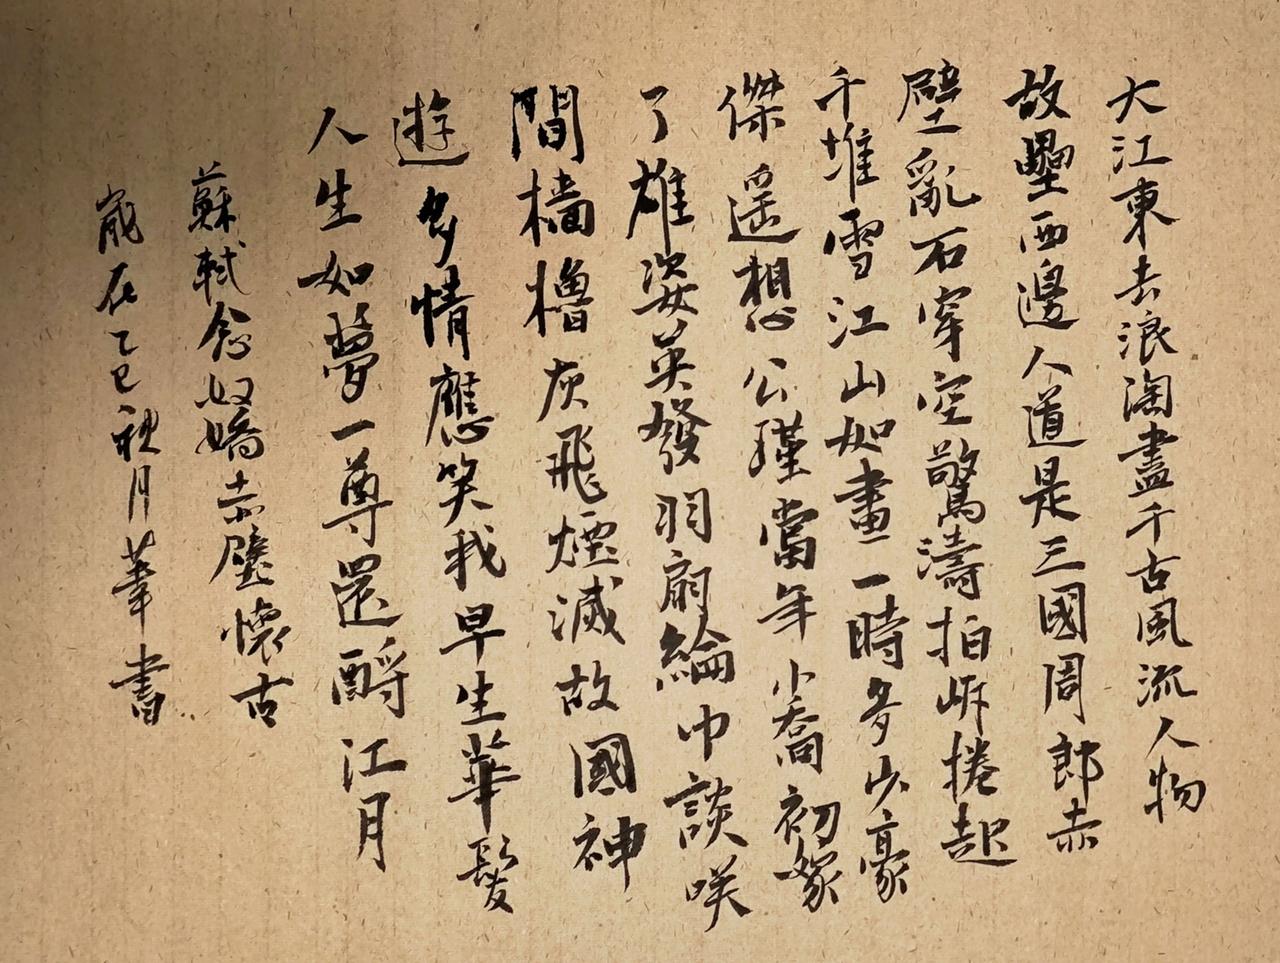 大江東去浪淘盡千古風流人物
故壘西邊人道是三國周郎赤
壁亂石穿空驚濤拍岍捲起
千堆雪江山如畫一時多少豪
傑遥想公瑾當年小喬初嫁
了雄姿英發羽扇綸巾談咲
間檣櫓灰飛煙滅故國神
遊多情應笑我早生華髮
人生如夢一尊還酹江月
蘇軾念奴嬌赤壁懷古
歲在乙巳秋月華書